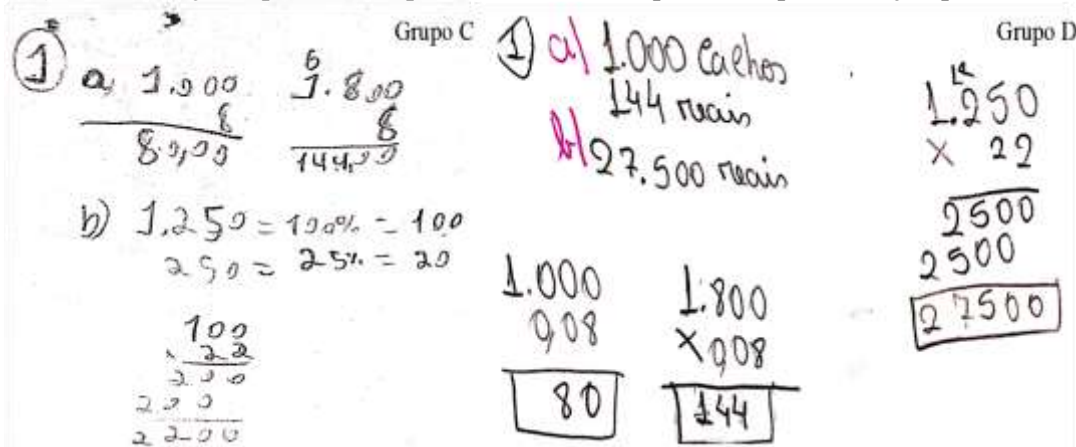 Grupo C
1 a) 1.000
8
80,00
6
1.800
8
144,00
b) 1.250 = 100% = 100
250 = 25% = 20
100
22
200
200
2200
Grupo D
1) a) 1.000 Cachos
144 reais
b) 27.500 reais
1.000
0,08
80
1.800
X 0,08
144
1.250
X 22
2500
2500
27500